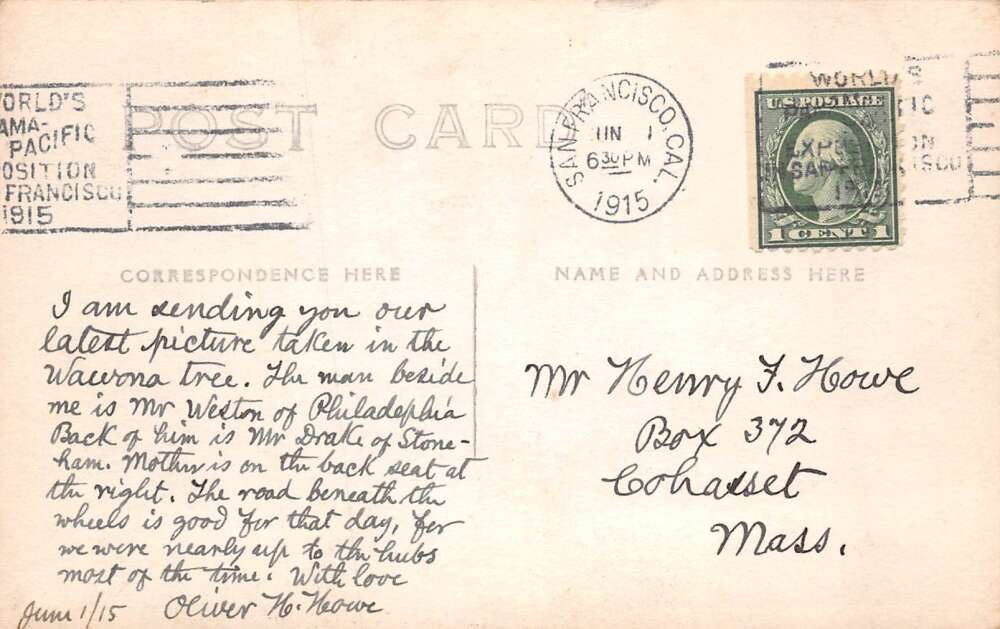 POST CARD
WORLD'S
AMA-
PACIFIC
OSITION
FRANCISCO
1915
SAN FRANCISCO, CAL.
JUN 1
6 30 PM
1915
WORLD'S
IC
EXPOSITION
SAN FRANCISCO
191
U.S. POSTAGE
1 CENT 1
CORRESPONDENCE HERE
I am sending you our
latest picture taken in the
Wawona tree. The man beside
me is Mr Weston of Philadephia
Back of him is Mr Drake of Stone-
ham. Mother is on the back seat at
the right. The road beneath the
wheels is good for that day, for
we were nearly up to the hubs
most of the time. With love
Oliver H. Howe
June 1/15
NAME AND ADDRESS HERE
Mr Henry F. Howe
Box 372
Cohasset
Mass.